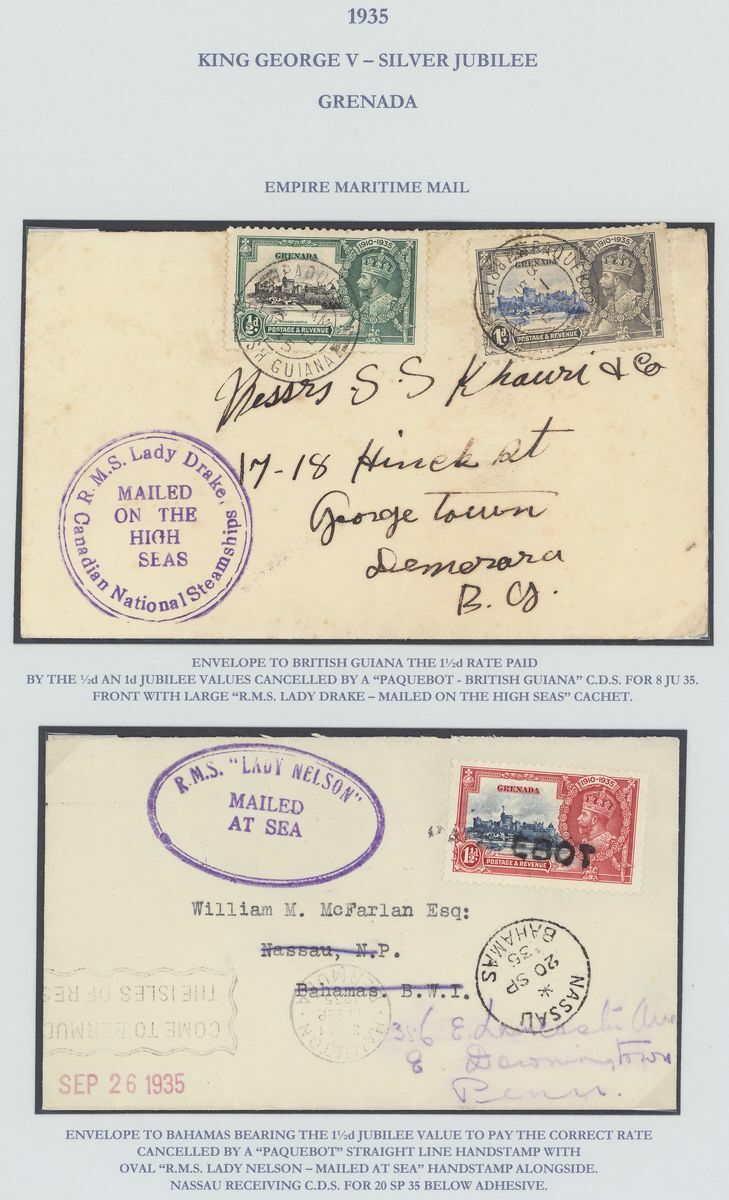 1935
KING GEORGE V – SILVER JUBILEE
GRENADA
EMPIRE MARITIME MAIL
1910-1935
GRENADA
½d
POSTAGE & REVENUE
GUIANA
1910-1935
GRENADA
1d
POSTAGE & REVENUE
Messrs S. S Khouri & Co
17-18 Hinck St
George Town
Demerara
B. G.
R.M.S. Lady Drake,
MAILED
ON THE
HIGH
SEAS
Canadian National Steamships
ENVELOPE TO BRITISH GUIANA THE 1½d RATE PAID
BY THE ½d AN 1d JUBILEE VALUES CANCELLED BY A “PAQUEBOT - BRITISH GUIANA” C.D.S. FOR 8 JU 35.
FRONT WITH LARGE “R.M.S. LADY DRAKE – MAILED ON THE HIGH SEAS” CACHET.
R.M.S. "LADY NELSON"
MAILED
AT SEA
1910-1935
GRENADA
1½d
POSTAGE & REVENUE
EBOT
William M. McFarlan Esq:
Nassau, N.P.
Bahamas. B.W.I.
NASSAU
20 SP
35
BAHAMAS
HAMILTON
356 E. Lancaster Ave
E. Downingtown
Penn.
COME TO BERMUD
THE ISLES OF RES
SEP 26 1935
ENVELOPE TO BAHAMAS BEARING THE 1½d JUBILEE VALUE TO PAY THE CORRECT RATE
CANCELLED BY A “PAQUEBOT” STRAIGHT LINE HANDSTAMP WITH
OVAL “R.M.S. LADY NELSON – MAILED AT SEA” HANDSTAMP ALONGSIDE.
NASSAU RECEIVING C.D.S. FOR 20 SP 35 BELOW ADHESIVE.